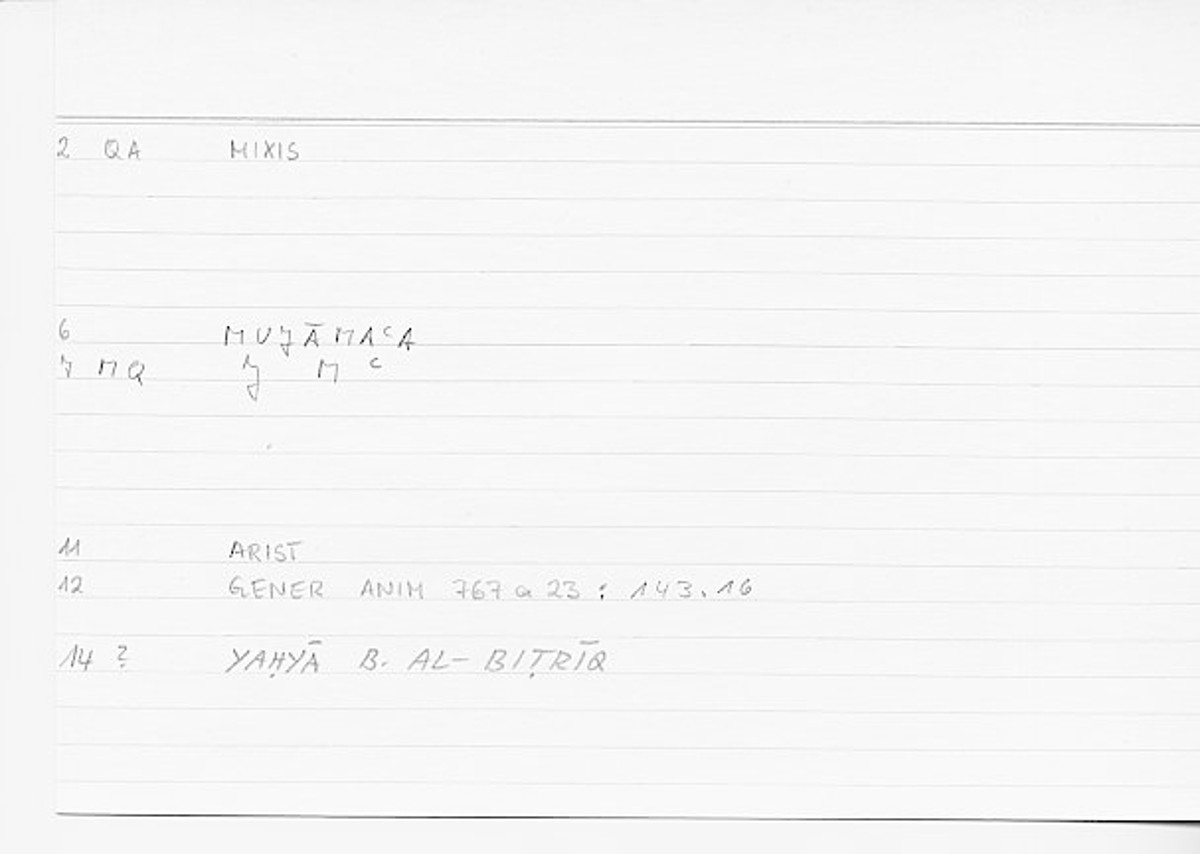 2 QA MIXIS
6 MUǦĀMAʿA
7 MQ Ǧ M ʿ
11 ARIST
12 GENER ANIM 767 a 23 : 143.16
14 ? YAḤYĀ B. AL-BIṬRĪQ